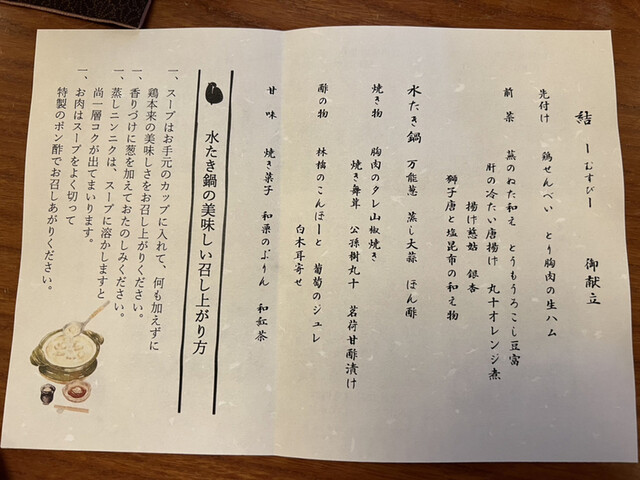 結 ーむすびー 御献立
先付け 鶏せんべい とり胸肉の生ハム
前菜 蕪のぬた和え とうもろこし豆富
肝の冷たい唐揚げ 丸十オレンジ煮
揚げ慈姑 銀杏
獅子唐と塩昆布の和え物
水たき鍋 万能葱 蒸し大蒜 ぽん酢
焼き物 胸肉のタレ山椒焼き
焼き舞茸 公孫樹丸十 茗荷甘酢漬け
酢の物 林檎のこんぽーと 葡萄のジュレ
白木耳寄せ
甘味 焼き菓子 和栗のぷりん 和紅茶
水たき鍋の美味しい召し上がり方
一、スープはお手元のカップに入れて、何も加えずに
鶏本来の美味しさをお召し上がりください。
一、香りづけに葱を加えておたのしみください。
一、蒸しニンニクは、スープに溶かしますと
尚一層コクが出てまいります。
一、お肉はスープをよく切って
特製のポン酢でお召しあがりください。